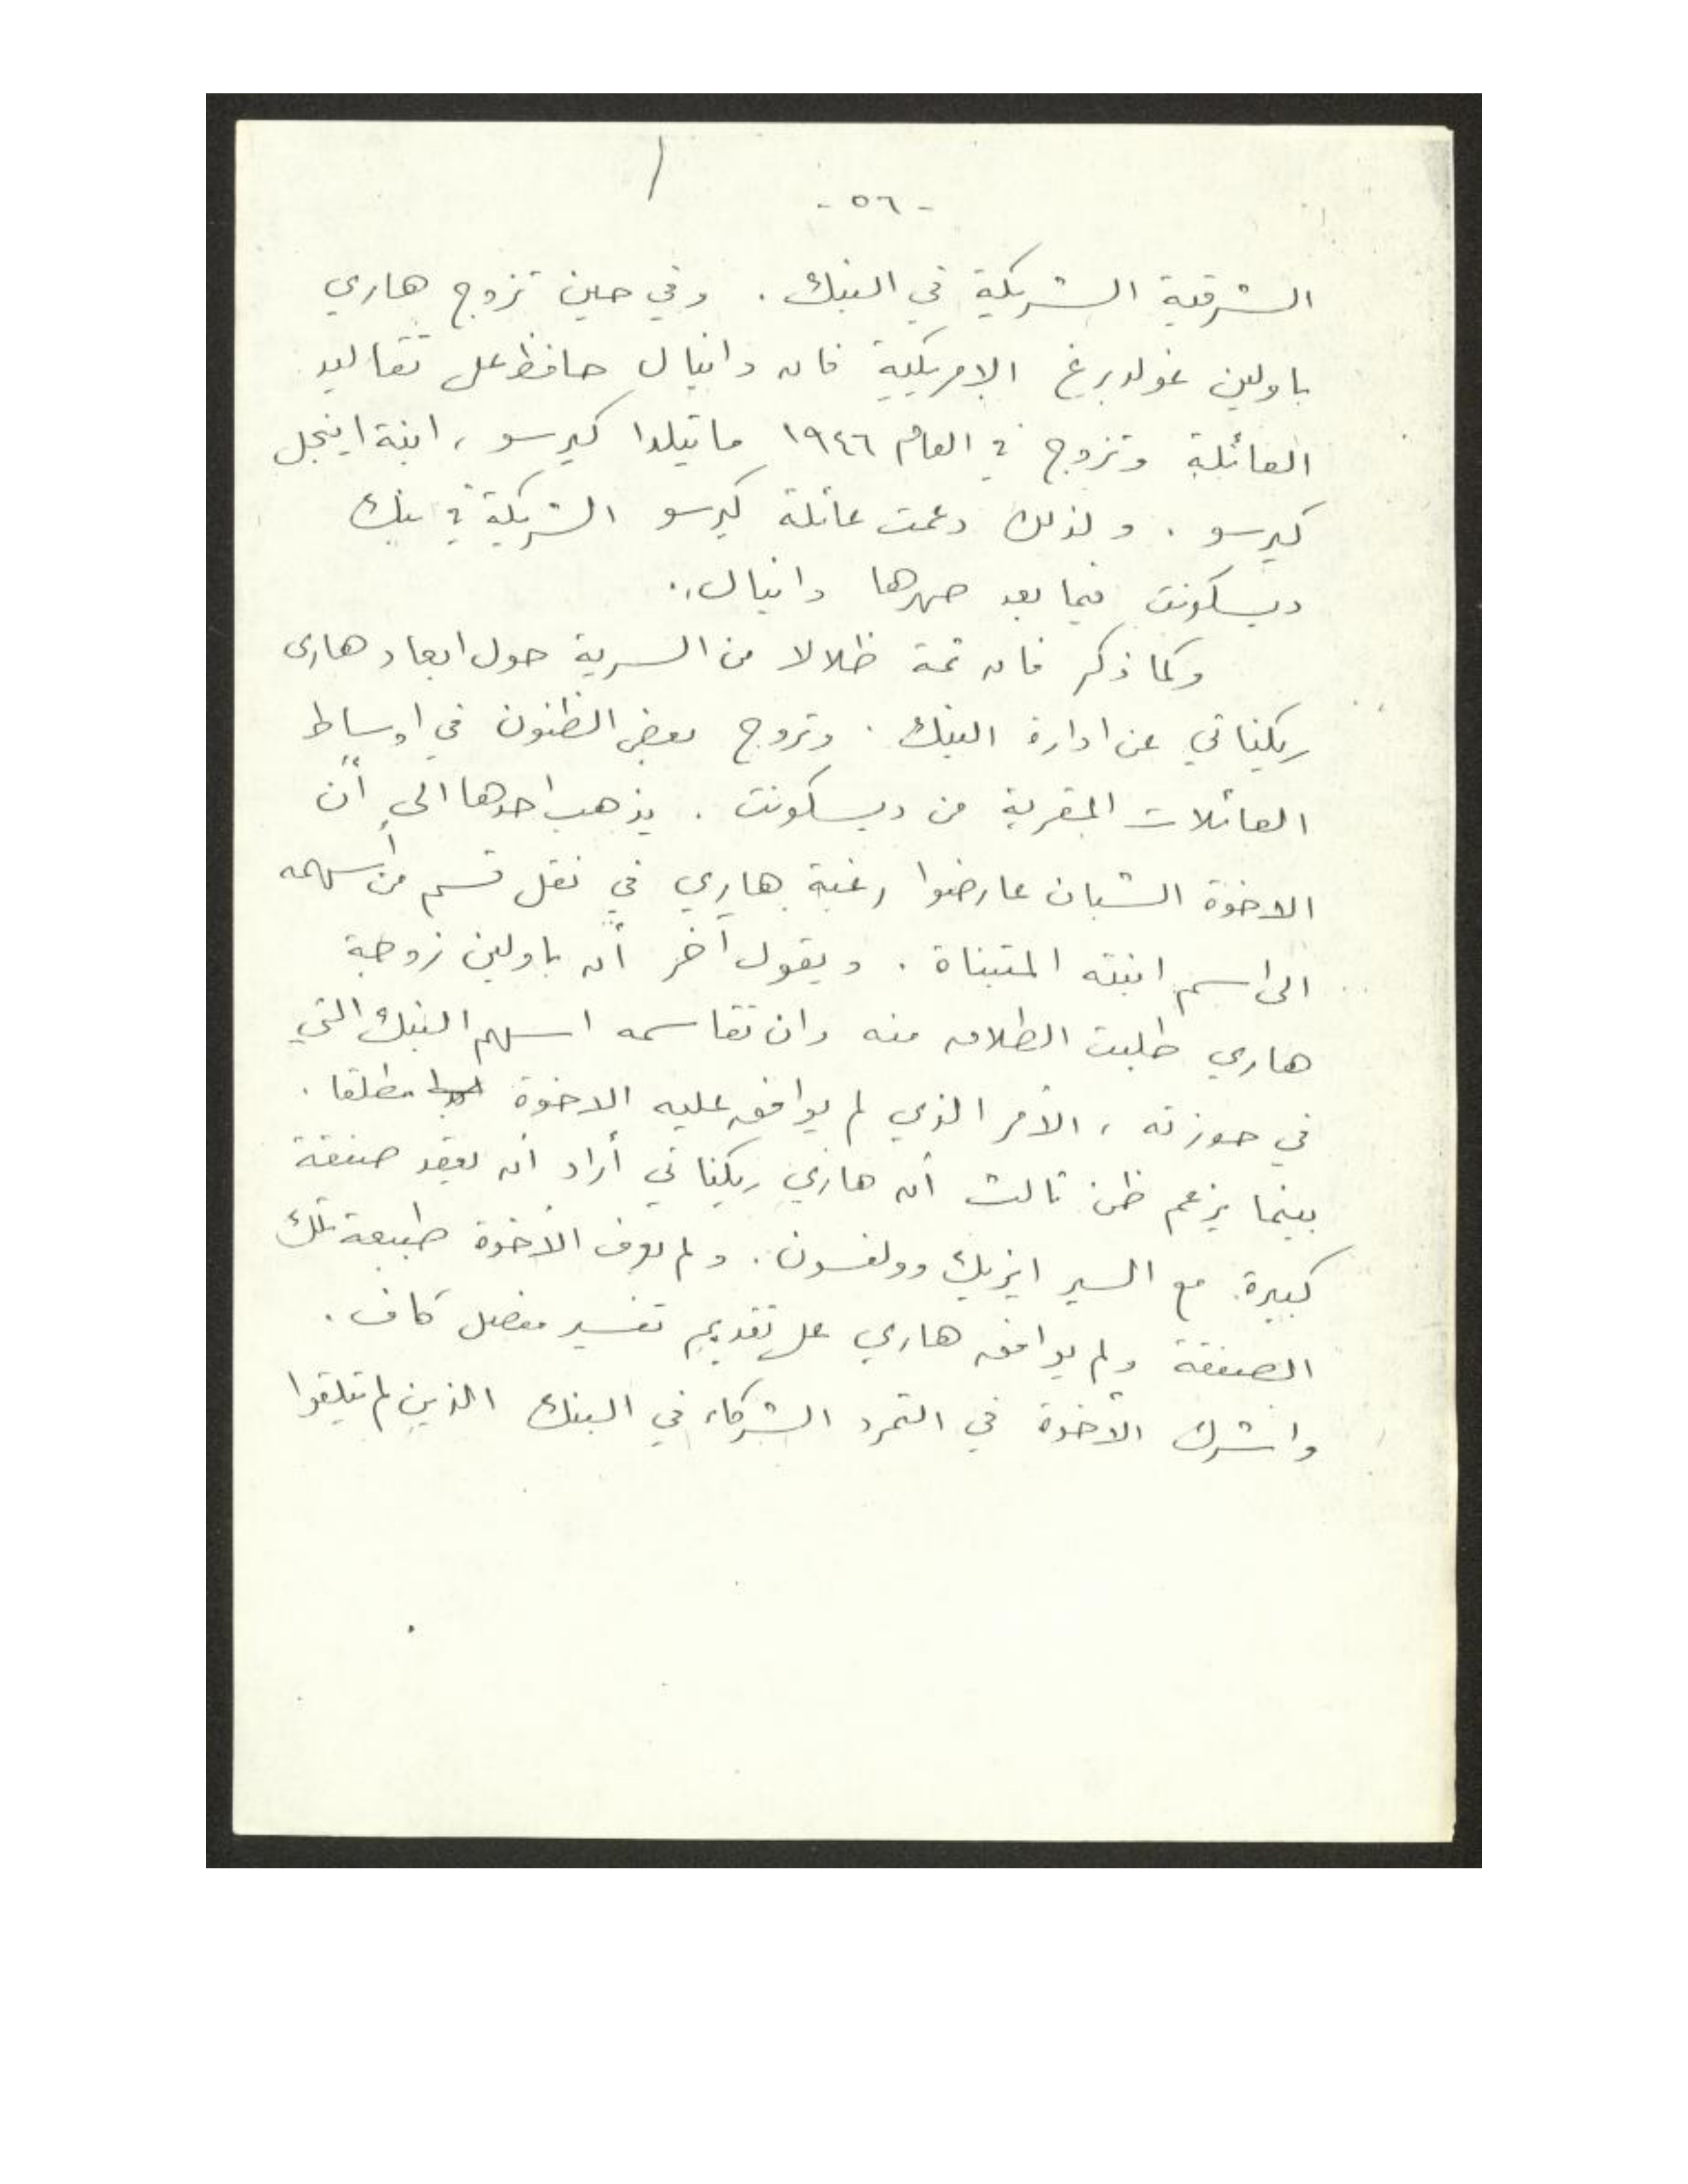 - ٥٦ -
الشرقية الشريكة في البنك . وفي حين تزوج هاري
باولين غولدبرغ الامريكية فان دانيال حافظ على تقاليد
العائلة وتزوج في العام ١٩٤٦ ماتيلدا كيرسو ، ابنة اينجل
كيرسو . ولذلك دعمت عائلة كيرسو الشريكة في بنك
ديسكونت فيما بعد صهرها دانيال .
وكما ذكر فان ثمة ظلالا من السرية حول ابعاد هاري
ريكناتي عن ادارة البنك . وتروج بعض الظنون في اوساط
العائلات المقربة من ديسكونت . يذهب احدها الى أن
الاخوة الشبان عارضوا رغبة هاري في نقل قسم من أسهمه
الى اسم ابنته المتبناة . ويقول آخر أن باولين زوجة
هاري طلبت الطلاق منه وان تقاسمه اسهم البنك التي
في حوزته ، الأمر الذي لم يوافق عليه الاخوة مطلقا .
بينما يزعم ظن ثالث أن هاري ريكناتي أراد أن يعقد صفقة
كبيرة مع السير ايزيك وولفسون . ولم يعرف الأخوة طبيعة تلك
الصفقة ولم يوافق هاري على تقديم تفسير مفصل كاف .
واشرك الأخوة في التمرد الشركاء في البنك الذين لم يتلقوا